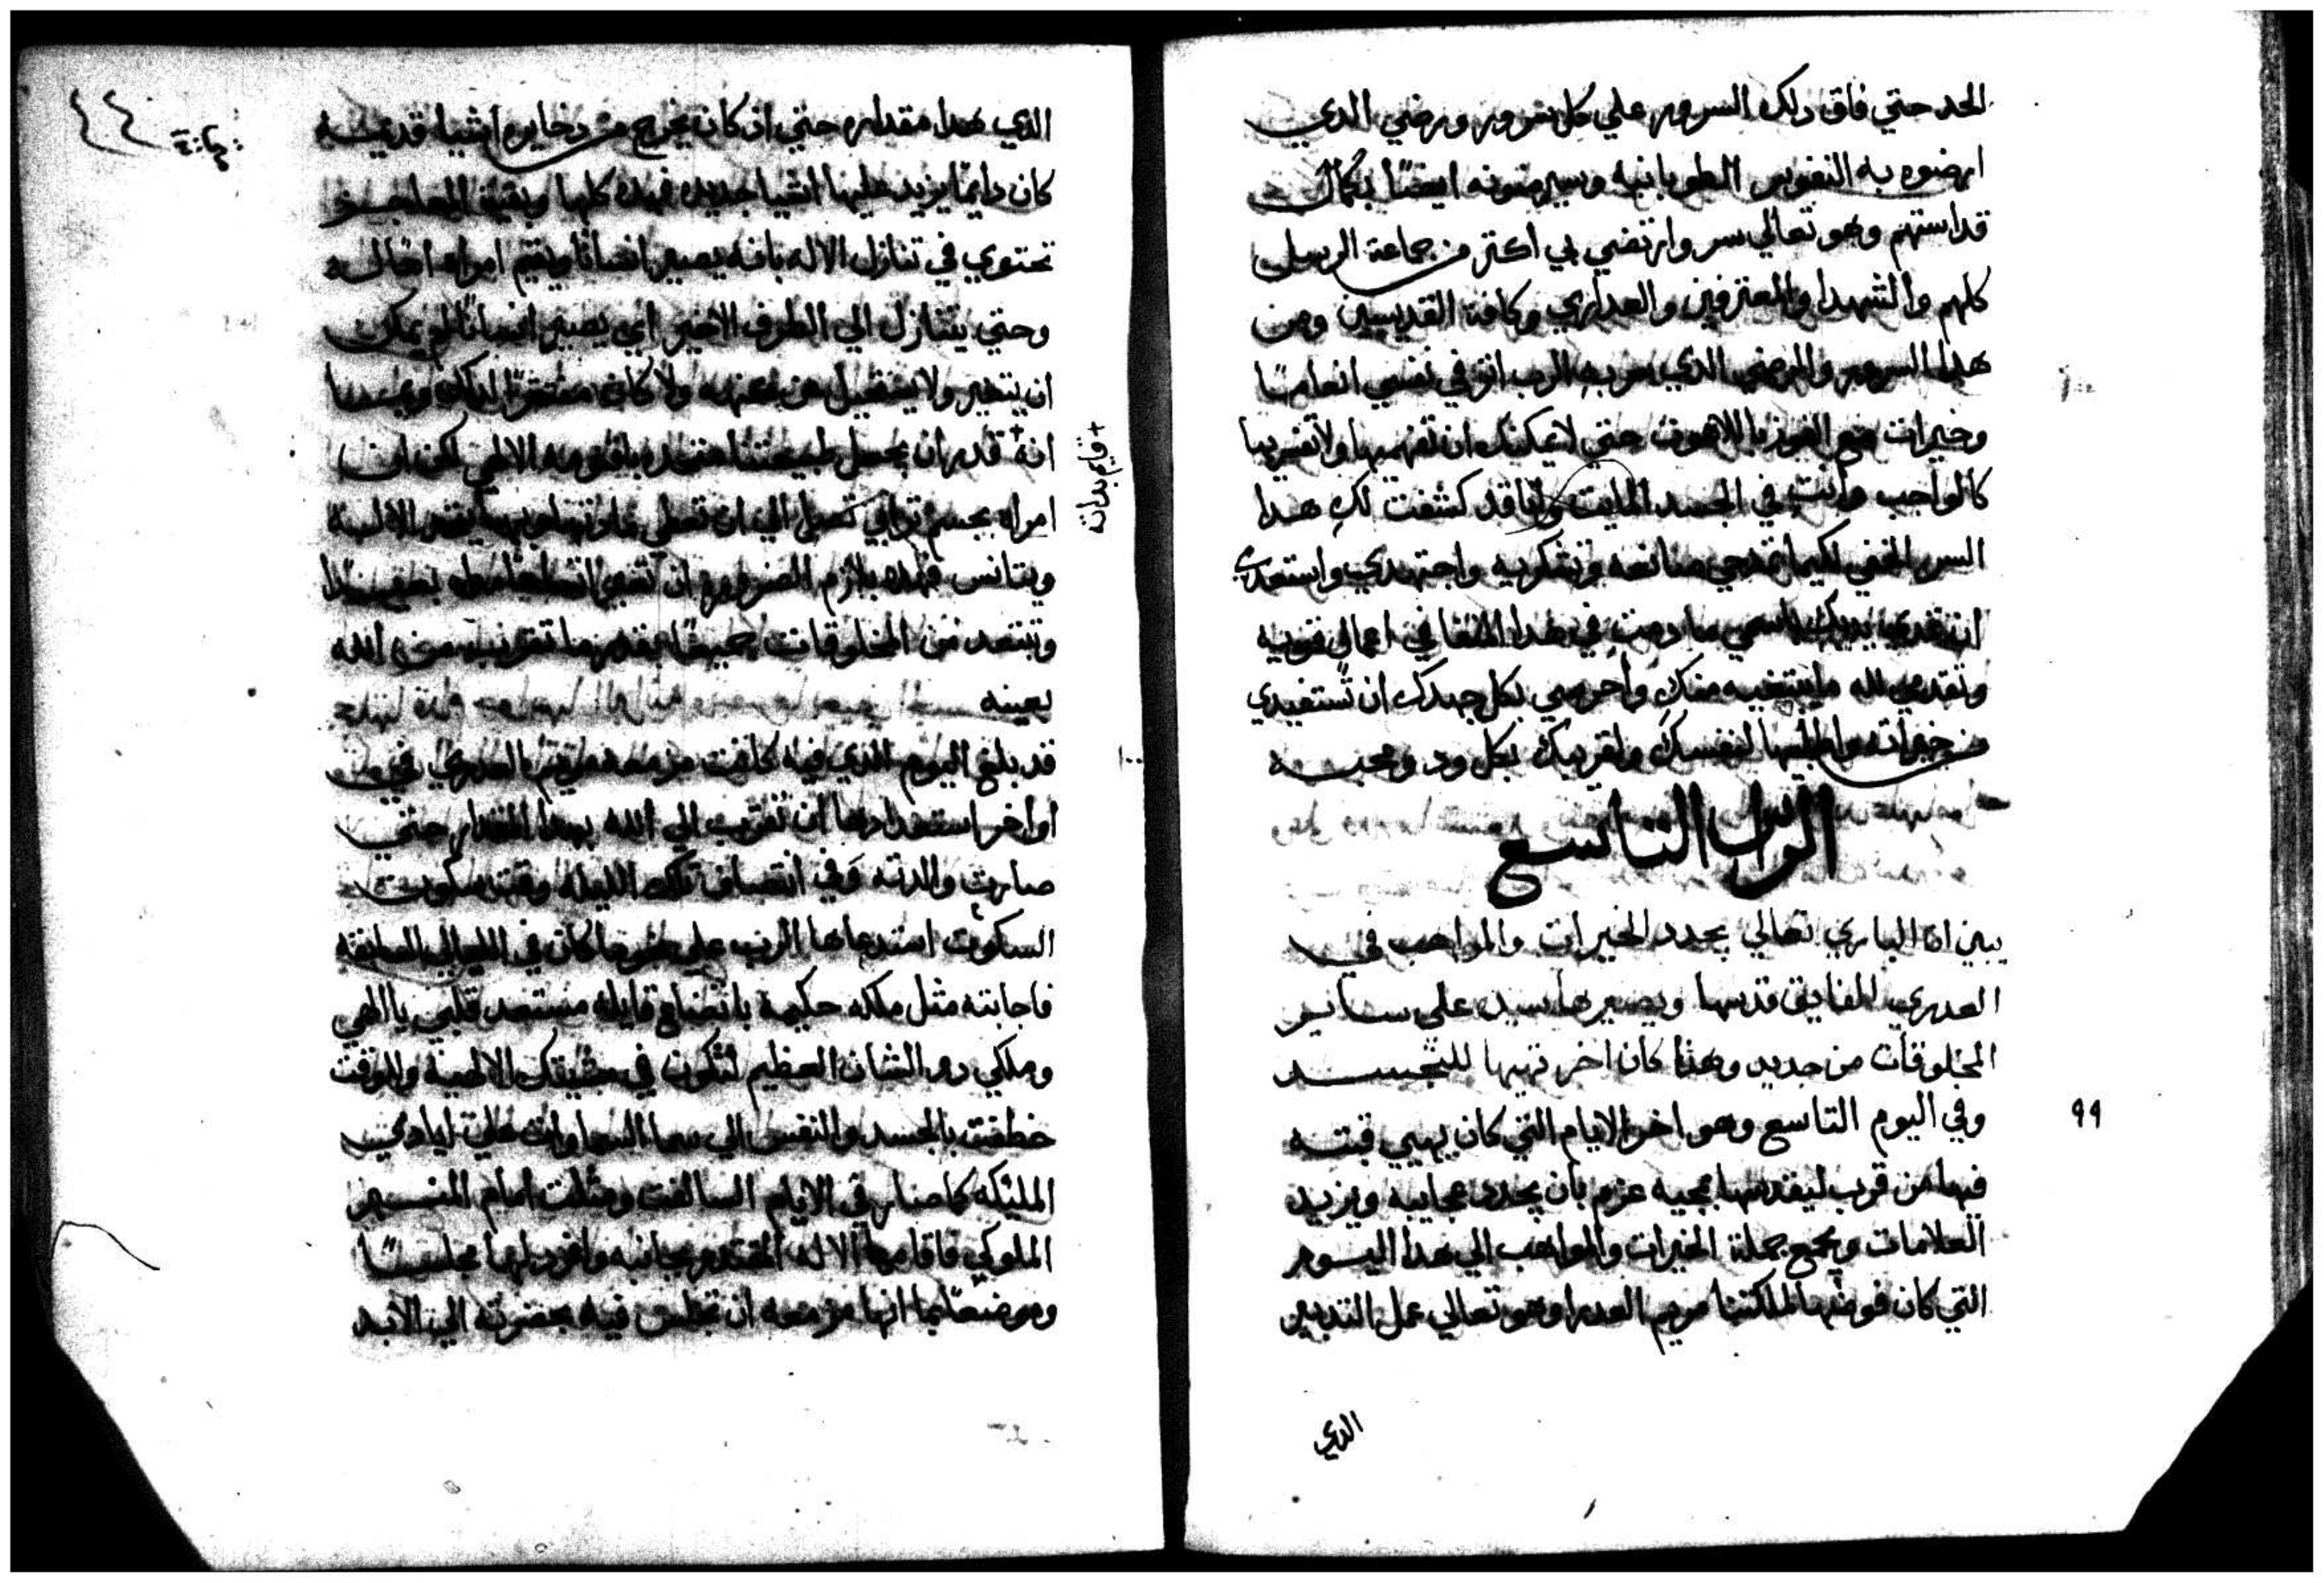 الحد حتي فاق دلك السرور علي كل سرور ورضي الدي
ارضوه به النفوس الطوبانيه وسيرضونه ايضًا بكمال
قداستهم وهو تعالي سر وارتضي بي اكتر من جماعة الرسل
كلهم والشهدا والمعترفين والعداري وكافة القديسين ومن
هدا السرور والرضي الدي سر به الرب اتر في نفسي انعامًا
وخيرات مع الفوز باللاهوت حتي لا يمكنك ان تفهميها ولا تفسريها
كالواجب وانتِ في الجسد المايت وانا قد كشفت لكِ هدا
السر الخفي لكيما تمدحي صانعه وتشكريه واجتهدي واستعدي
ان تمدي يديك باسمي ما دمتِ في هدا المنفا في اعمال قويه
وتقدمي لله ما يبتغيه منكِ واحرصي بكل جهدك ان تستفيدي
من خيراته واطلبيها لنفسك ولقريبك بكل ود ومحبـه
الراس التاسع
يبين ان الباري تعالي يجدد الخيرات والمواهب في
العدري الفايق قدسها ويصيرها سيده علي سـاير
المخلوقات من جديد وهدا كان اخر تهيها للتجسـد
وفي اليوم التاسع وهو اخر الايام التي كان يهيي قبتـه
99
فيها من قرب ليقدسها بمجيه عزم بان يجدد عجايبه ويزيد
العلامات ويجمع جملة الخيرات والمواهب الي هدا اليـوم
التي كان فوضها لملكتنا مريم العدرا وهو تعالي عمل التدبير
الدي
الدي هدا مقداره حتي ان كان يخرج من دخايره اشيا قديمـه
كان دايمًا يزيد عليها اشيا جديده فهده كلها وبقية المعاجـز
تحتوي في تنازل الاله بانه يصير انسانًا ويقيم امراه امًا لـه
وحتي يتنازل الي الطرف الاخير اي يصير انسانًا لم يمكن
ان يتغير ولا يستحيل عن ولا كان مفتقرًا لدلك
انه قدر ان يجعل طبيعتنا متحده باقنومه الالهي لكن ان
قايم بداته
امراه بجسم ترابي تصل الي ان تعطي مادتها يتحد الاله
ويتانس فهده يلزم الضروره ان
وتبتعد من المخلوقات جميعًا بقدر ما تقترب من الله
بعينه
قد بلغ اليوم الدي فيه كانت مزمعه مريم العدري في
اواخر استعدادها ان تقترب الي الله بهدا المقدار حتي
صارت والدته وفي انتصاف تلك الليله وقت سكوت
السكوت استدعاها الرب علي نحو ما كان في الليالي السابقه
فاجابته مثل ملكه حكيمة باتضاع قايله مستعد قلبي ياالهي
وملكي دو الشان العظيم لتكون في مشيتك الالهية وللوقت
خطفت بالجسد والنفس الي سما السماوات علي ايادي
المليكه كما صار في الايام السالفت ومثلت امام المنـبر
الملوكي فاقامها الاله المقتدر بجانبه وافرد لها مجلسًا
وموضعًا بما انها مزمعه ان تجلس فيه بحضرته الي الابد